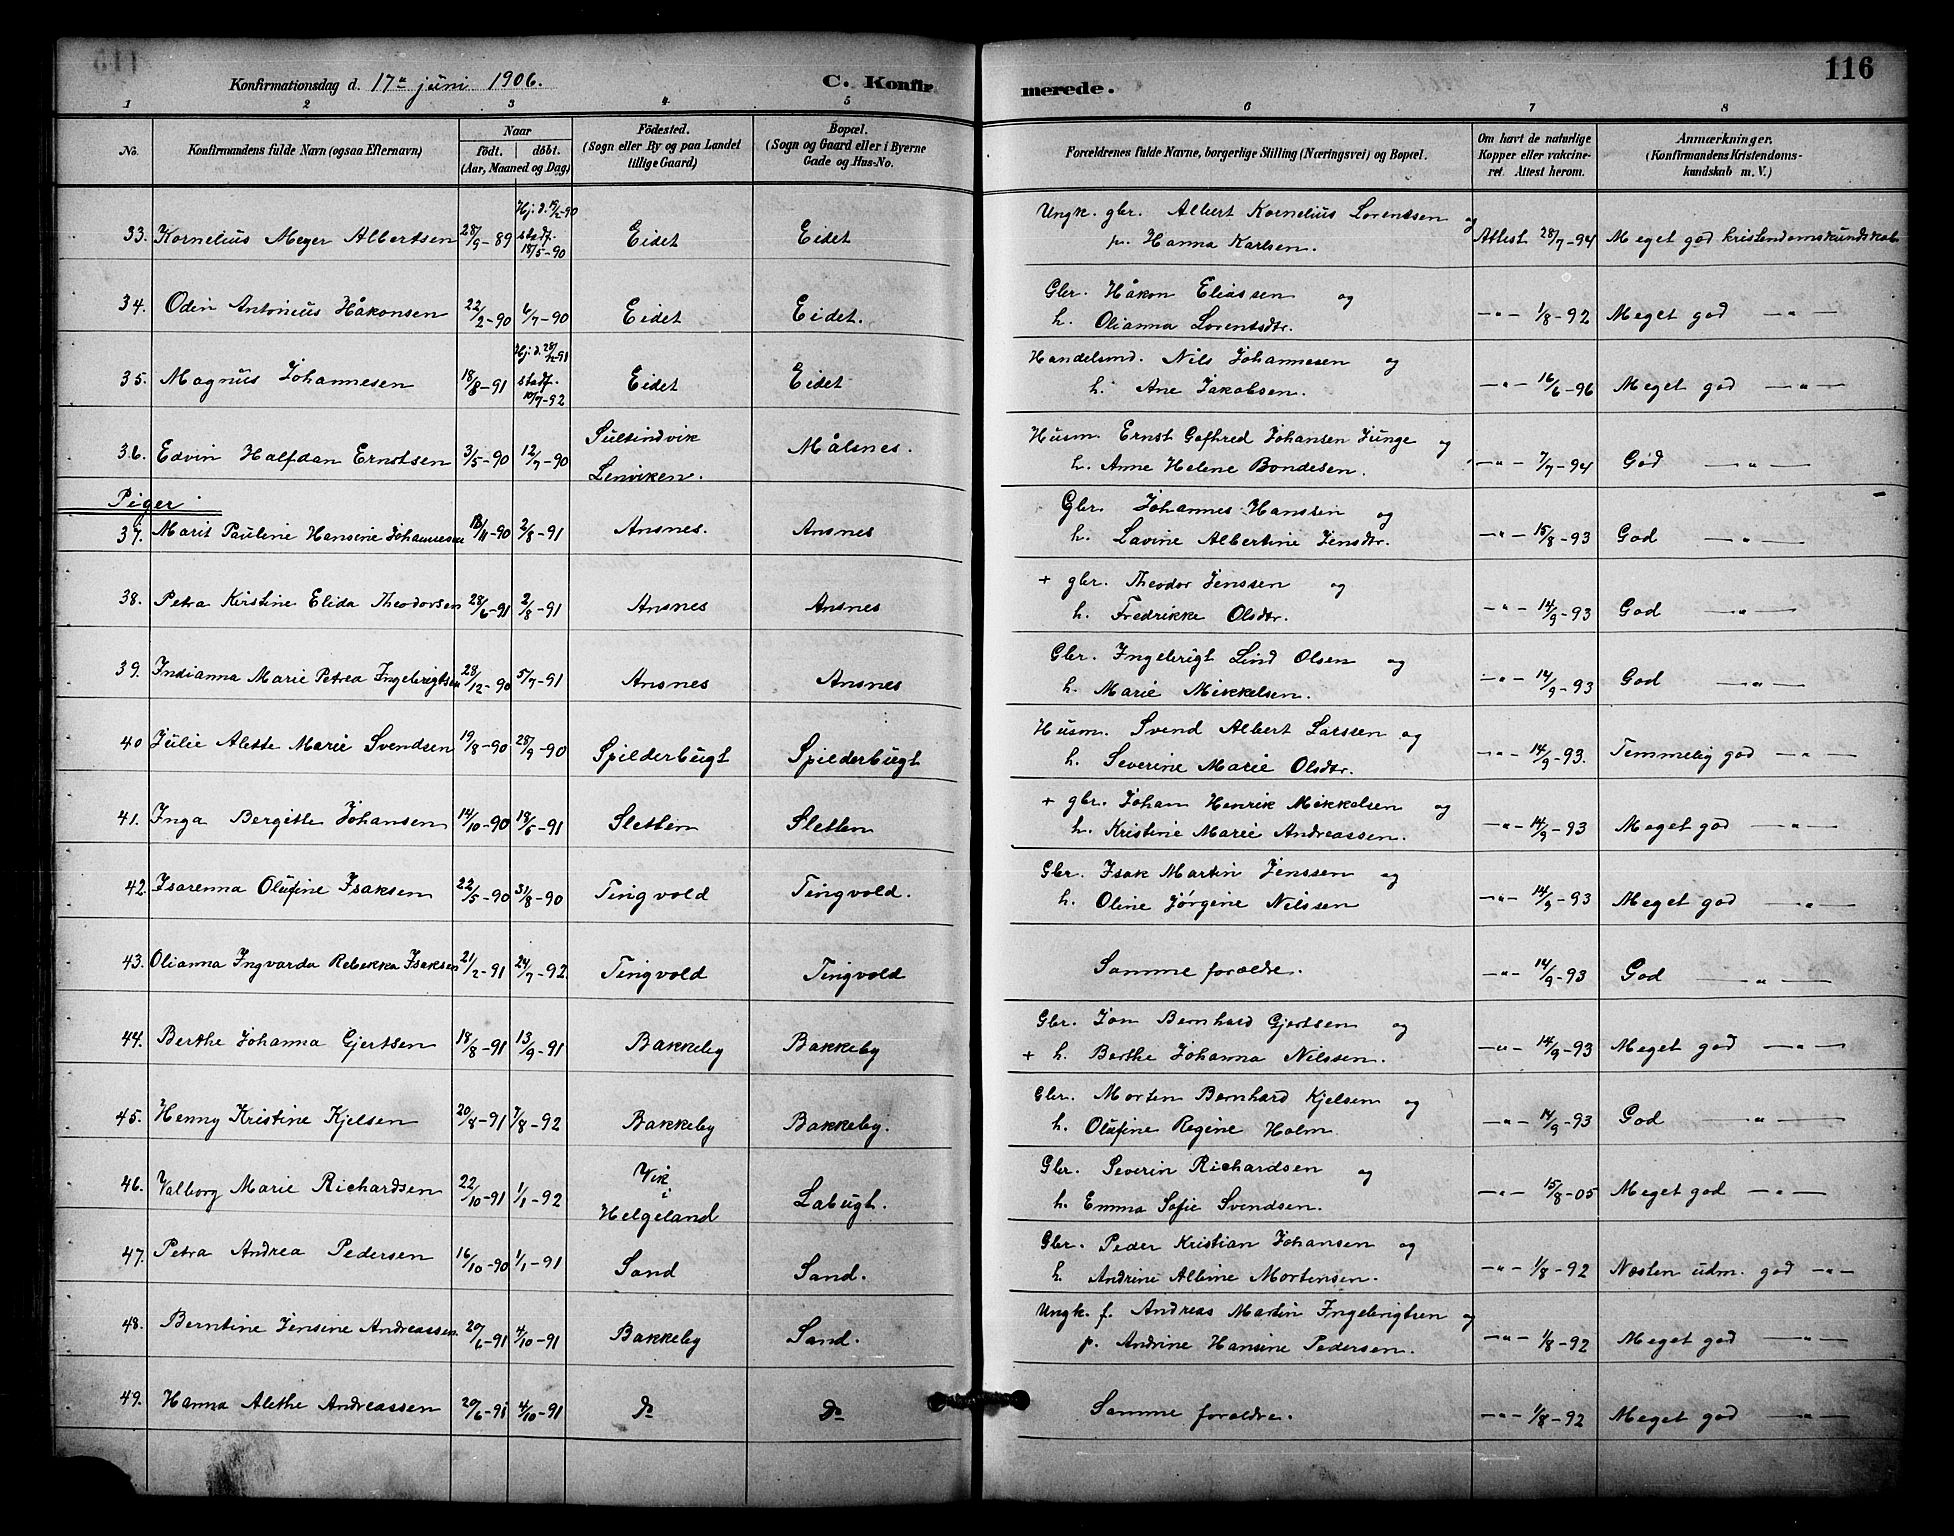 116
Konfirmationsdag d. 17de juni 1906. C. Konfirmerede.
1 2 3 4 5 6 7 8
No. Konfirmandens fulde Navn (ogsaa Efternavn) Naar födt. döbt. (Aar, Maaned og Dag) Födested. (Sogn eller By og paa Landet tillige Gaard) Bopæl. (Sogn og Gaard eller i Byerne Gade og Hus-No. Forældrenes fulde Navne, borgerlige Stilling (Næringsvei) og Bopæl. Om havt de naturlige Kopper eller vakcineret. Attest herom. Anmærkninger. (Konfirmandens Kristendomskundskab m. V.)
33. Kornelius Meyer Albertsen 28/9-89 Hj. d. 19/2-90 stadf. 18/5-90 Eidet Eidet Ungk. gbr. Albert Kornelius Lorentsen og p. Hanna Karlsen. Attest 28/7-94 Meget god kristendomskundskab
34. Odin Antonius Håkonsen 22/2-90 6/7-90 Eidet Eidet. Gbr. Håkon Eliassen og h. Olianna Lorentsdtr. —"— 1/8-92 Meget god —"—
35. Magnus Johannesen 18/8-91 Hj. d. 28/12-91 stadf. 10/7-92 Eidet Eidet Handelsmd. Nils Johannesen og h. Ane Jakobsen. —"— 16/6-96 Meget god —"—
36. Edvin Halfdan Ernstsen 3/5-90 12/7-90 Sultindvik Lenviken. Målsnes. Husm. Ernst Gofhred Johansen Junge og h. Anne Helene Bondesen. —"— 7/7-94 God —"—
Piger
37. Marit Pauline Hansine Johannesen 18/11-90 2/8-91 Ansnes. Ansnes Gbr. Johannes Hanssen og h. Lavine Albertine Jensdtr. —"— 15/8-93 God —"—
38. Petra Kirstine Elida Theodorsen 28/6-91 2/8-91 Ansnes Ansnes + gbr. Theodor Jenssen og h. Fredrikke Olsdtr. —"— 14/9-93 God —"—
39. Indianna Marie Petrea Ingebrigtsen 28/12-90 5/7-91 Ansnes Ansnes Gbr. Ingebrigt Lind Olsen og h. Marie Mikkelsen. —"— 14/9-93 God —"—
40 Julie Alette Marie Svendsen 19/8-90 28/9-90 Spilderbugt Spilderbugt Husm. Svend Albert Larssen og h. Severine Marie Olsdtr. —"— 14/9-93. Temmelig god —"—
41. Inga Bergitte Johansen 14/10-90 18/5-91 Sletten Sletten + gbr. Johan Henrik Mikkelsen og h. Kristine Marie Andreassen. —"— 14/9-93 Meget god —"—
42. Isarenna Olufine Isaksen 22/5-90 31/8-90 Tingvold Tingvold. Gbr. Isak Martin Jenssen og h. Oline Jörgine Nilssen —"— 14/9-93 Meget god —"—
43. Olianna Ingvarda Rebekka Isaksen 21/2-91 24/7-92 Tingvold Tingvold Samme forældre. —"— 14/9-93 God —"—
44. Berthe Johanna Gjertsen 18/8-91 13/9-91 Bakkeby Bakkeby Gbr. Jon Bernhard Gjertsen og + h. Berthe Johanna Nilssen. —"— 14/9-93 Meget god —"—
45. Henny Kristine Kjelsen 20/8-91 7/8-92 Bakkeby Bakkeby. Gbr. Morten Bernhard Kjelsen og h. Olufine Regine Holm —"— 14/9-93 God —"—
46. Valborg Marie Richardsen 22/10-91 1/1-92 Vik i Helgeland Labugt. Gbr. Severin Richardsen og h. Emma Sofie Svendsen. —"— 15/8-05 Meget god —"—
47. Petra Andrea Pedersen 16/10-90 1/1-91 Sand Sand. Gbr. Peder Kristian Johansen og h. Andrine Albine Mortensen. —"— 1/8-92 Næsten udm. god —"—
48. Berntine Jensine Andreassen 20/6-91 4/10-91 Bakkeby Sand. Ungk. f. Andreas Martin Ingebrigtsen og p. Andrine Hansine Pedersen. —"— 1/8-92 Meget god —"—
49. Hanna Alethe Andreassen 20/6-91 4/10-91 Do Do Samme forældre. —"— 1/8-92 Meget god —"—